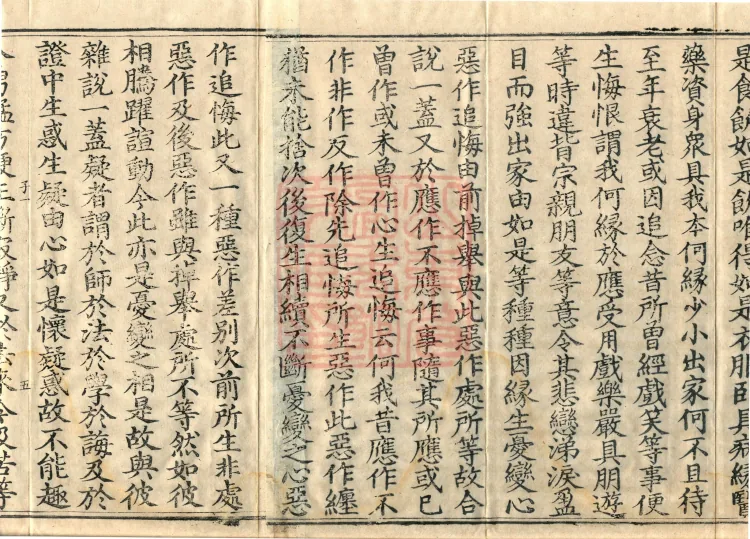 是飲飲如是飲唯得如是衣服臥具病緣醫
藥資身眾具我本何緣少小出家何不且待
至年衰老或因追念昔所曾經戲笑等事便
生悔恨謂我何緣於應受用戲樂嚴具朋遊
等時違背宗親朋友等意令其悲戀涕淚盈
目而強出家由如是等種種因緣生憂變心
惡作追悔由前掉舉與此惡作處所等故合
說一蓋又於應作不應作事隨其所應或已
曾作或未曾作心生追悔云何我昔應作不
作非作反作除先追悔所生惡作此惡作纏
猶未能捨次後復生相續不斷憂變之心惡
作追悔此又一種惡作差別次前所生非處
惡作及後惡作雖與掉舉處所不等然如彼
相騰躍諠動今此亦是憂變之相是故與彼
雜說一蓋疑者謂於師於法於學於誨及於
證中生惑生疑由心如是懷疑惑故不能趣
五